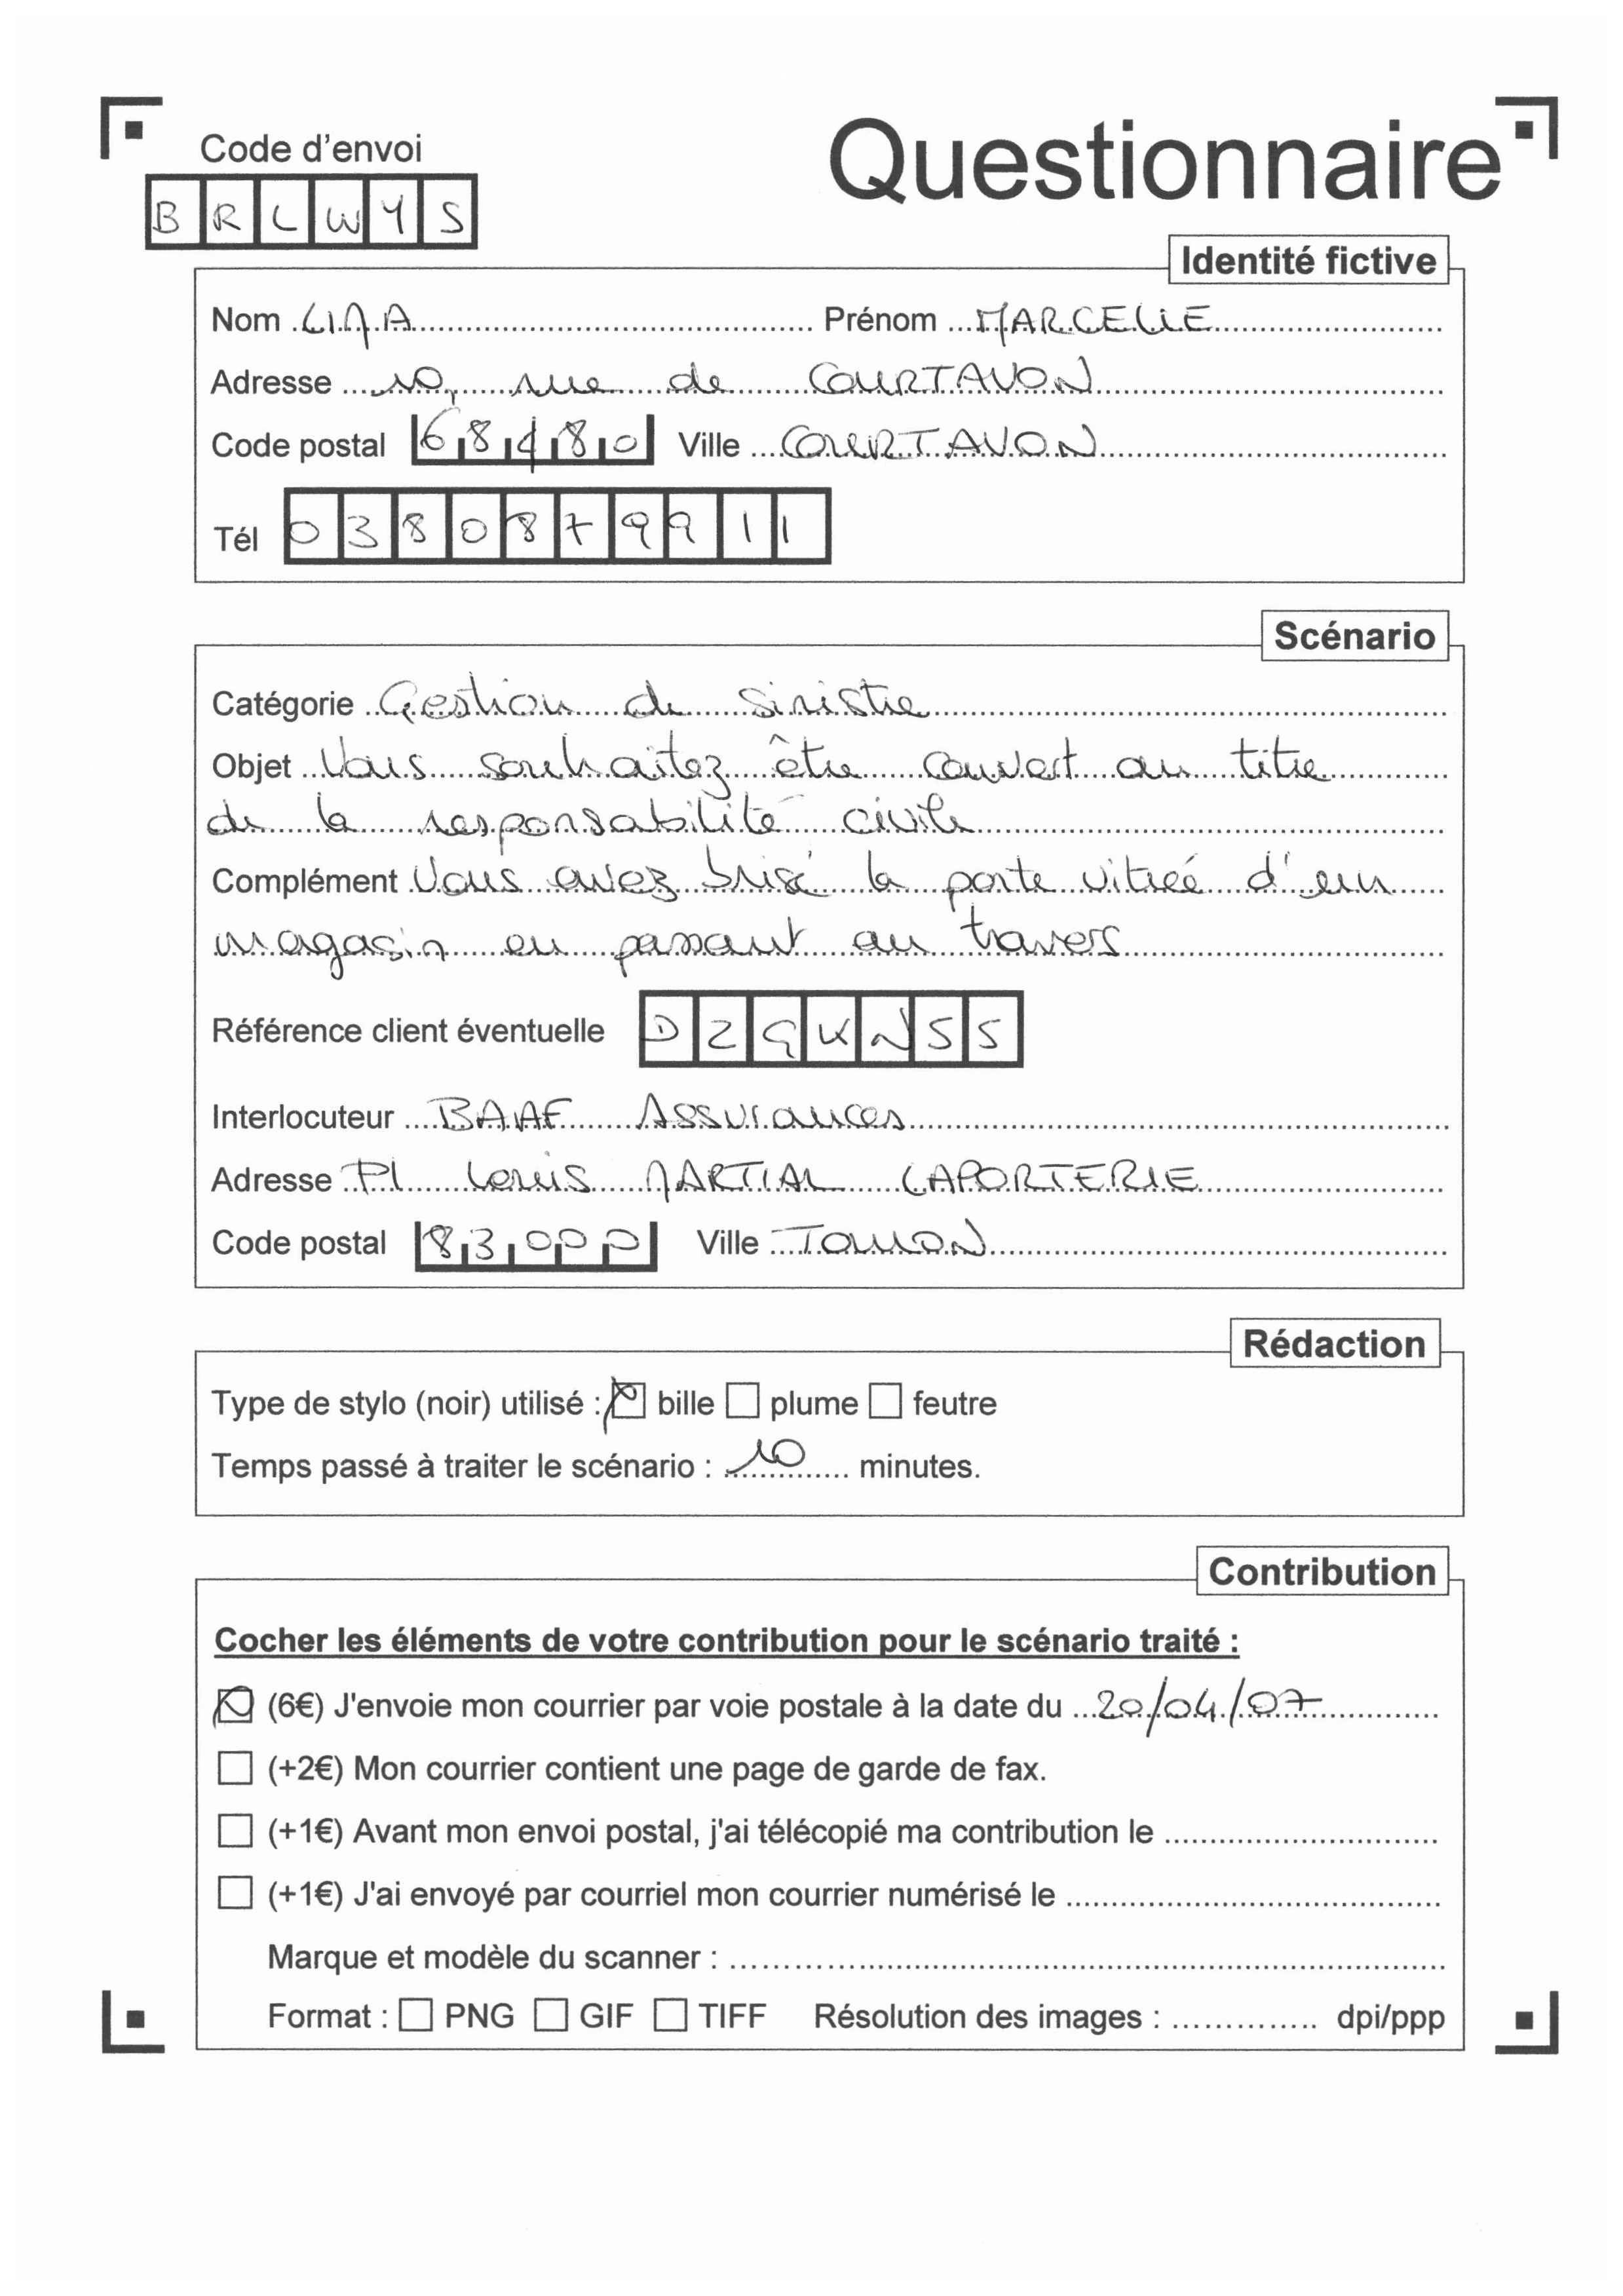 Code d'envoi
Questionnaire
BRLWYS
Identité fictive
Nom LIMA Prénom MARCELLE
Adresse 10, rue de COURTAVON
Code postal 68480 Ville COURTAVON
Tél 0380879911
Scénario
Catégorie Gestion de sinistre
Objet Vous souhaitez être couvert au titre
de la responsabilité civile
Complément Vous avez brisé la porte vitrée d'un
magasin en passant au travers
Référence client éventuelle DZGKNSS
Interlocuteur BAAF Assurances
Adresse Pl Louis MARTIAL LAPORTERIE
Code postal 83000 Ville TOULON
Rédaction
Type de stylo (noir) utilisé : bille plume feutre
Temps passé à traiter le scénario : 10 minutes.
Contribution
Cocher les éléments de votre contribution pour le scénario traité :
(6€) J'envoie mon courrier par voie postale à la date du 20/04/07
(+2€) Mon courrier contient une page de garde de fax.
(+1€) Avant mon envoi postal, j'ai télécopié ma contribution le
(+1€) J'ai envoyé par courriel mon courrier numérisé le
Marque et modèle du scanner :
Format : PNG GIF TIFF Résolution des images : dpi/ppp